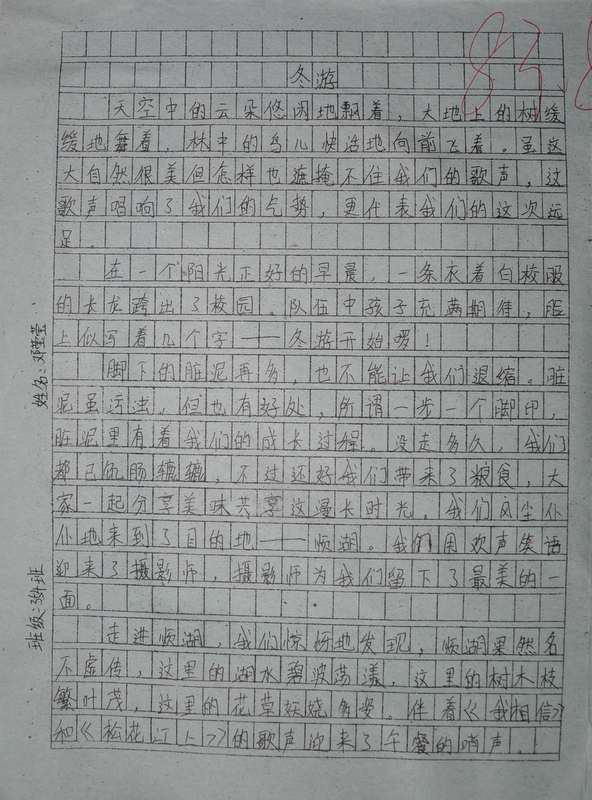 83.8
冬游
天空中的云朵悠闲地飘着，大地上的树缓
缓地舞着，林中的鸟儿快活地向前飞着。虽这
大自然很美但怎样也遮掩不住我们的歌声，这
歌声唱响了我们的气势，更代表我们的这次远
足。
在一个阳光正好的早晨，一条衣着白校服
的长龙跨出了校园。队伍中孩子充满期待，脸
上似写着几个字——冬游开始啰！
脚下的脏泥再多，也不能让我们退缩。脏
泥虽污浊，但也有好处，所谓一步一个脚印，
脏泥里有着我们的成长过程。没走多久，我们
都已饥肠辘辘，不过还好我们带来了粮食，大
家一起分享美味共享这漫长时光。我们风尘仆
仆地来到了目的地——顺湖。我们用欢声笑语
迎来了摄影师，摄影师为我们留下了最美的一
面。
走进顺湖，我们惊讶地发现，顺湖果然名
不虚传，这里的湖水碧波荡漾，这里的树木枝
繁叶茂，这里的花草妖娆多姿。伴着《我相信》
和《松花江上》的歌声迎来了午餐的哨声。
姓名：邓莹莹
班级：